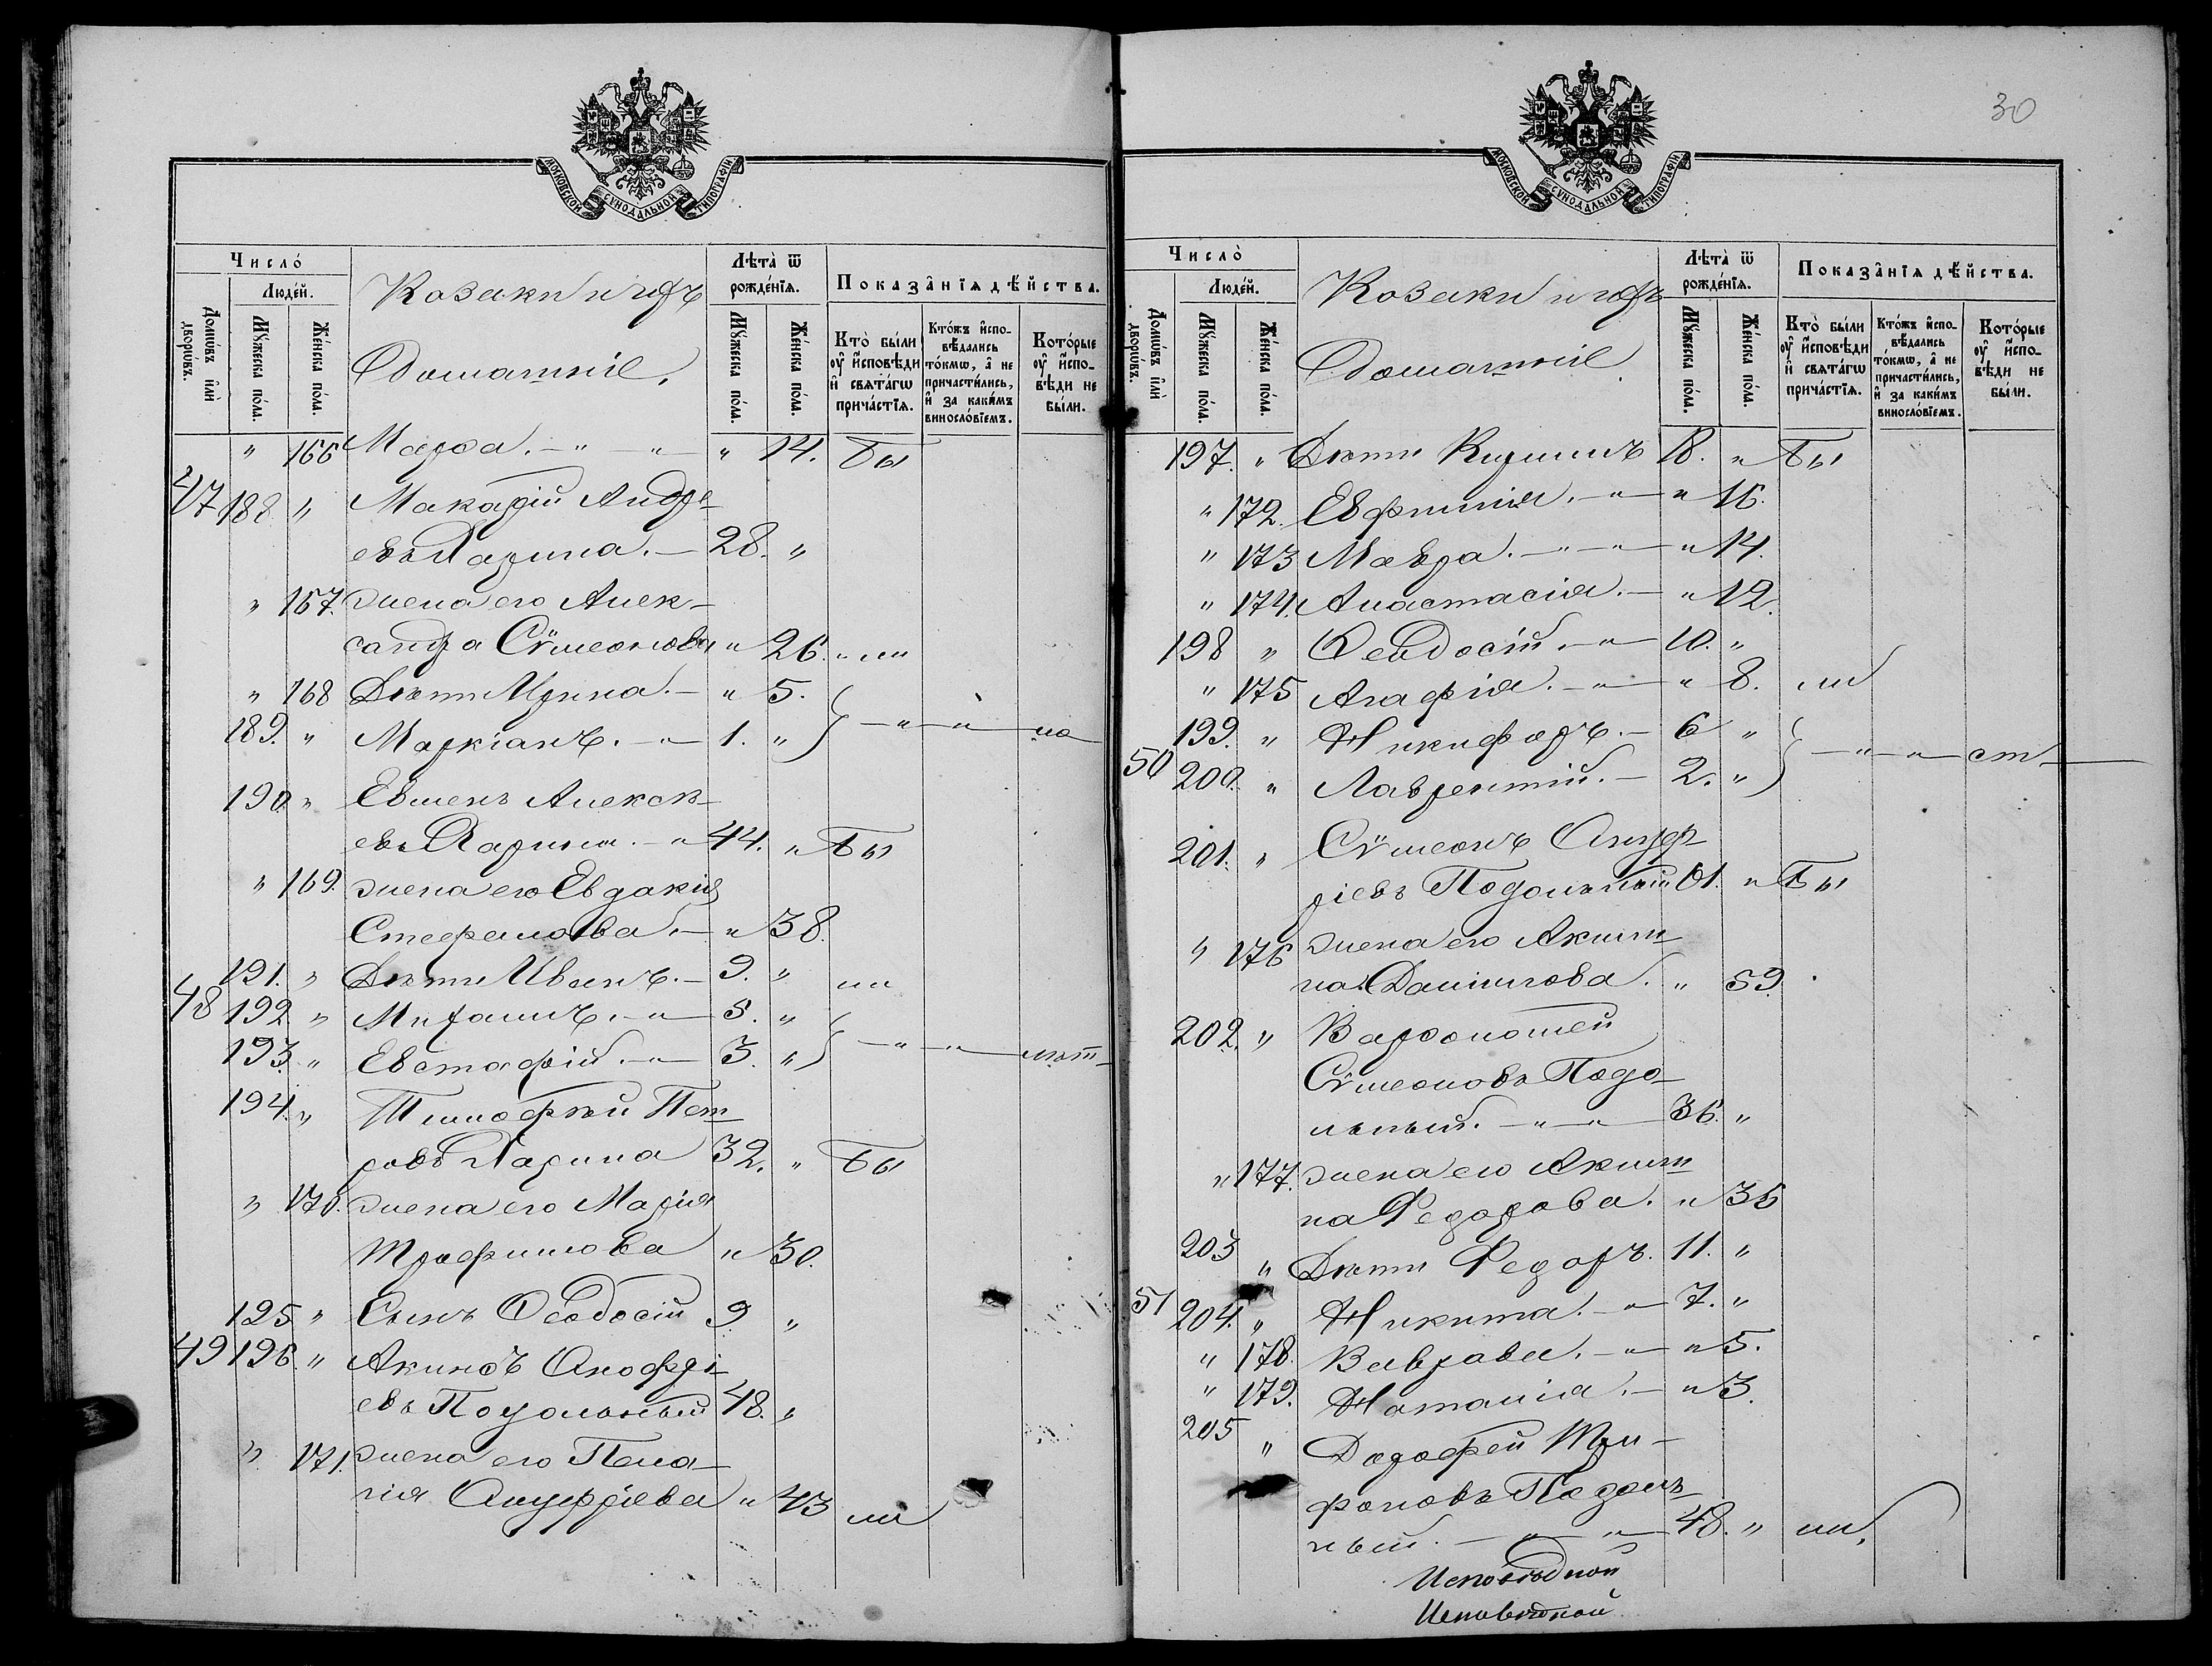 МОСКОВСКОЙ СѴНОДАЛЬНОЙ ТИПОГРАФІИ
Число̀
Люде́й.
Домѡ́въ и҆лѝ дворѡ́въ.
Мꙋ́жеска по́ла.
Же́нска по́ла.
Козаки и ихъ
Домашніе.
Лѣта̀ ѿ рожде́нїѧ.
Мꙋ́жеска по́ла.
Же́нска по́ла.
Показа̑нїѧ дѣ́йства.
Кто̀ бы́ли ᲂу҆ и҆сповѣ́ди и҆ свѧта́гѡ прича́стїѧ.
Кто́жъ и҆спо- вѣ́дались то́кмѡ, а҆ не причасти́лись, и҆ за каки́мъ винослѡ́вїемъ.
Кото́рые ᲂу҆ и҆спо- вѣ́ди не бы́ли.
" 166 Марѳа. — " — " — " 14. Бы
47 188 " Макарій Андре-
евъ Ларина. — 28. "
" 167. жена его Алек-
сандра Сѵмеонова " 26. " ли
" 168 Дѣти Ирина. — " 5.
189. " Маркіанъ. — " — 1. " } — " — " — ма
190. " Евменъ Алексѣ-
евъ Ларина. — " 44. " Бы
" 169. жена его Евдокія
Стефанова. — " 38.
191. " Дѣти Иванъ. — 9. " ли
48 192. " Михаилъ. — " — 5. "
193. " Евстафій. — " — 3. " } — " — " — лѣт
194. " Тимофей Пет-
ровъ Ларина 32. " Бы
" 170. жена его Марія
Трофимова " 30.
195 " Сынъ Ѳеодосій 9 "
49 196. " Акимъ Онофрі-
евъ Подольный 48. "
" 171. жена его Пела-
гія Онуфріева " 43 ли
30
МОСКОВСКОЙ СѴНОДАЛЬНОЙ ТИПОГРАФІИ
Число̀
Люде́й.
Домѡ́въ и҆лѝ дворѡ́въ.
Мꙋ́жеска по́ла.
Же́нска по́ла.
Козаки и ихъ
Домашніе.
Лѣта̀ ѿ рожде́нїѧ.
Мꙋ́жеска по́ла.
Же́нска по́ла.
Показа̑нїѧ дѣ́йства.
Кто̀ бы́ли ᲂу҆ и҆сповѣ́ди и҆ свѧта́гѡ прича́стїѧ.
Кто́жъ и҆спо- вѣ́дались то́кмѡ, а҆ не причасти́лись, и҆ за каки́мъ винослѡ́вїемъ.
Кото́рые ᲂу҆ и҆спо- вѣ́ди не бы́ли.
197. " Дѣти Кириллъ 18. " Бы
" 172. Евфимія. — " — " 16.
" 173 Мавра. — " — " — " 14.
" 174. Анастасія. — " 12.
198 " Ѳеодосій. — " — 10. "
" 175 Агафія. — " — " 8. ли
199. " Никифоръ. — 6 "
50 200. " Лаврентій. — 2. " } — " — " — ст
201. " Сѵмеонъ Онуф-
ріевъ Подольный 61. " Бы
" 176 жена его Акили-
на Даніилова. " 59.
202. " Варѳоломей
Сѵмеоновъ Подо-
льный. — " — " — 36. "
" 177. жена его Акили-
на Федорова. " 35
203 " Дѣти Федоръ. 11. "
51 204. " Никита. — " — 7. "
" 178. Варвара. — " — " 5.
" 179. Наталія. — " 3.
205 " Дорофей Три-
фоновъ Подоль-
ный. — " — " — 48. " ли,
Исповѣдной
Исповѣдной